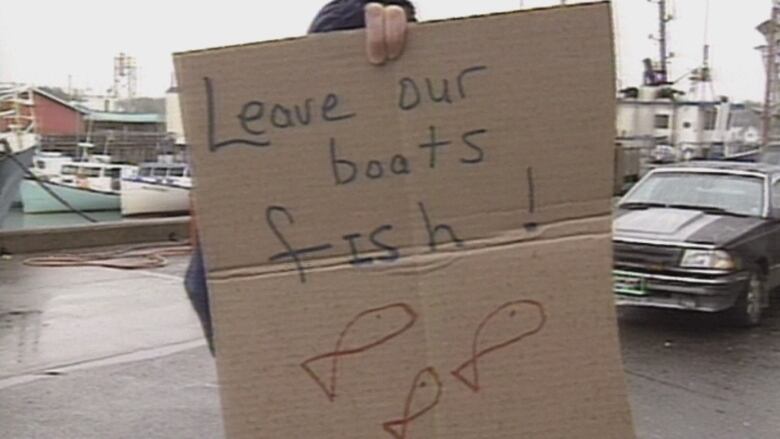 Leave our
boats
fish!